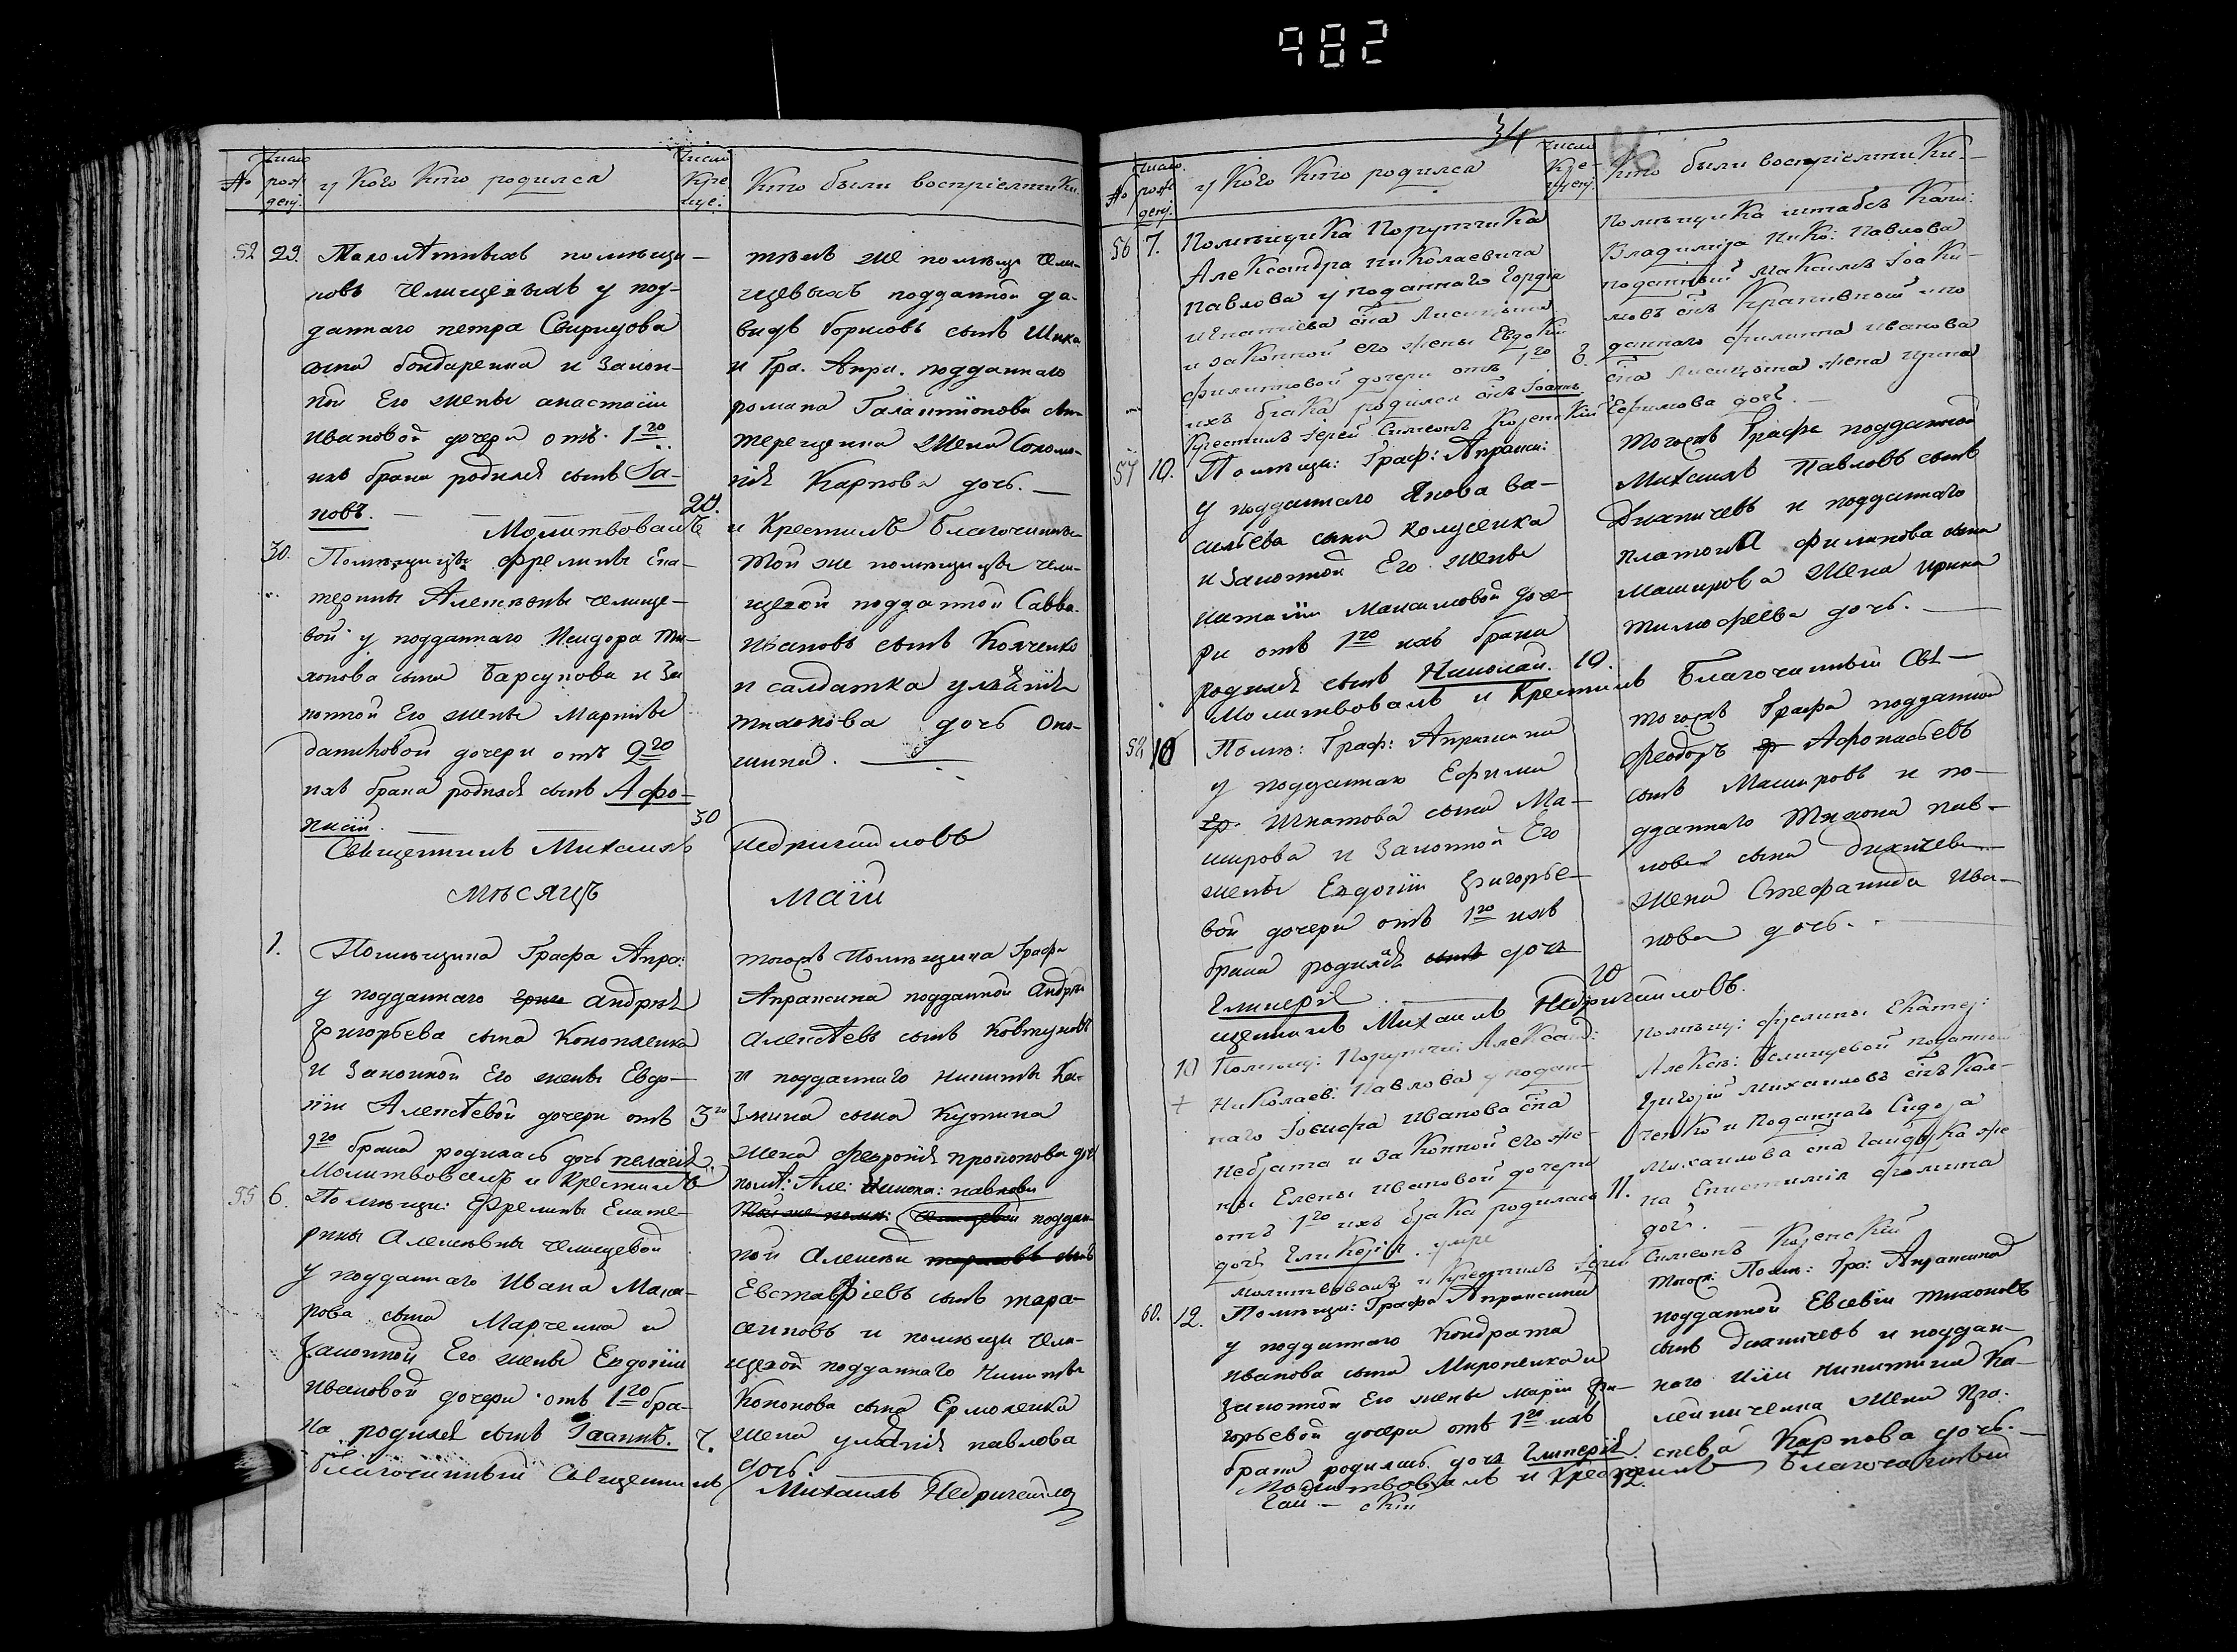 982
№
Число рожденj.
у Кого Кто родился
Число Креще:
Кто были воспріемники
52 29. Малолѣтныхъ помѣщи-
ковъ Челищевыхъ у под-
даннаго петра Свиридова
сына бондаренка и Закон-
ной Его жены анастасіи
Ивановой дочери отъ 1го
ихъ брака родился сынъ Іа-
ковъ. 29.
тѣхъ же помѣщи: Чели-
щевыхъ подданной да-
видъ борисовъ сынъ Шика
и Гра. Апра. подданнаго
романа Галактіонова сына
терещенка Жена Соломо-
нія Карпова дочь.
Молитвовалъ и Крестилъ Благочинный
30. Помѣщицы Фрелины Ека-
терины Алексѣвны Челище-
вой у подданнаго Исидора Ти-
хонова сына Барсукова и За
конной Его жены Марины
даниловой дочери отъ 2го
ихъ брака родился сынъ Афо-
насій. 30
той же помѣщицы чели-
щевой подданной Савва
Ивановъ сынъ Колченко
и салдатка улианія
тихонова дочь
Священникъ Михаилъ Недригайловъ
Мѣсяцъ Маій
1. Помѣщика Графа Апра:
у подданнаго андрѣя
григорьева сына Кононленка
и Законной Его жены Евдо-
кіи Алексѣевой дочери отъ
1го брака родилась дочь пелагія. 3го
тогожъ Помѣщика Графа
Апраксина подданной андрей
алексѣевъ сынъ Ковтуновъ
и подданнаго никиты Ка-
змина сына Кутина
жена февронія прокопова дочь
Молитвовалъ и Крестилъ
55 6. Помѣщи: Фрелины Екате-
рины алексѣвны челищевой
у подданнаго Ивана Мака-
рова сына Марченка и
Законной Его жены Евдокіи
Ивановой дочери отъ 1го бра-
ка родился сынъ Іоаннъ. 7.
помѣ: Але: Никола: павлова
той же помѣ: Челищевой поддан-
ной алексѣй
Евставфіевъ сынъ тара-
сиковъ и помѣщи чели-
щевой подданнаго никиты
Кононова сына Ермоленка
жена улианія павлова
дочь
благочинный Священникъ Михаилъ Недригайловъ
34
№
Число рожденj.
у Кого Кто родился
Число Крещенj.
Кто были воспріемники
56 7. Помѣщика Порутчика
Александра николаевича
павлова у поданнаго Гордѣя
игнатьева сна Лисицына
и законной его жены Евдокіи
филиповой дочери отъ 1го
ихъ брака родился снъ Іоаннъ 8.
Помѣщика штабсъ Капи:
Владиміра Нико: Павлова
поданный Максимъ Іоаки-
мовъ снъ Крапивной и по
даннаго филиппа иванова
сна Лисицына жена ирина
Ефимова дочь.
Крестилъ Іерей Симеонъ Козенскій
57 10. Помѣщи: Граф: Апракси:
у подданнаго Якова ва-
сильева сына колусенка
и Законной Его жены
Максимовой доче-
ри отъ 1го ихъ брака
родился сынъ Николай. 10.
тогожъ Графа подданной
Михаилъ Павловъ сынъ
Дихтичевъ и подданнаго
платона филипова сына
Маширова Жена ирина
тимофеева дочь.
Молитвовалъ и Крестилъ Благочинный Свя-
58 10 Помѣ: Граф: Апраксина
у подданнаго Ефима
Игнатова сына Ма-
широва и Законной Его
жены Евдокіи григорье-
вой дочери отъ 1го ихъ
брака родилася сынъ дочь
Гликерія 10
тогожъ Графа подданной
Феодоръ Афонасьевъ
сынъ Машировъ и по-
дданнаго Тихона пав-
лова сына дихтичева
жена Стефанида Ива-
нова дочь.
щенникъ Михаилъ Недригайловъ.
10 Помѣщ: Порутчи: Александ:
+ Николаев: Павлова у подан-
наго Іосифа Иванова сна
Небрата и законной его же-
ны Елены Ивановой дочери
отъ 1го ихъ брака родилась 11.
дочь Гликерія. умре
Помѣщ: фрелины Екатер:
Алексѣ: Челищевой поданной
Григорій Михаиловъ снъ Кол-
ченко и Поданнаго Сидора
Михаилова сна Гайдука же-
на Епистимія фомина
дочь.
Молитвовалъ и Крестилъ Іерей Симеонъ Козенскій
60. 12. Помѣщи: Графа Апраксина
у подданнаго Кондрата
иванова сына Мироненка и
Законной Его жены маріи гри-
горьевой дочери отъ 1го ихъ
брака родилась дочь Гликерія. 12.
тогож: Помѣ: Гра: Апраксина
подданной Евсевій тихоновъ
сынъ дихтичевъ и поддан-
наго Иліи никитина Ка-
лѣниченка жена Пра-
сковья Карпова дочь.
Молитвовалъ и Крестилъ Благочинный